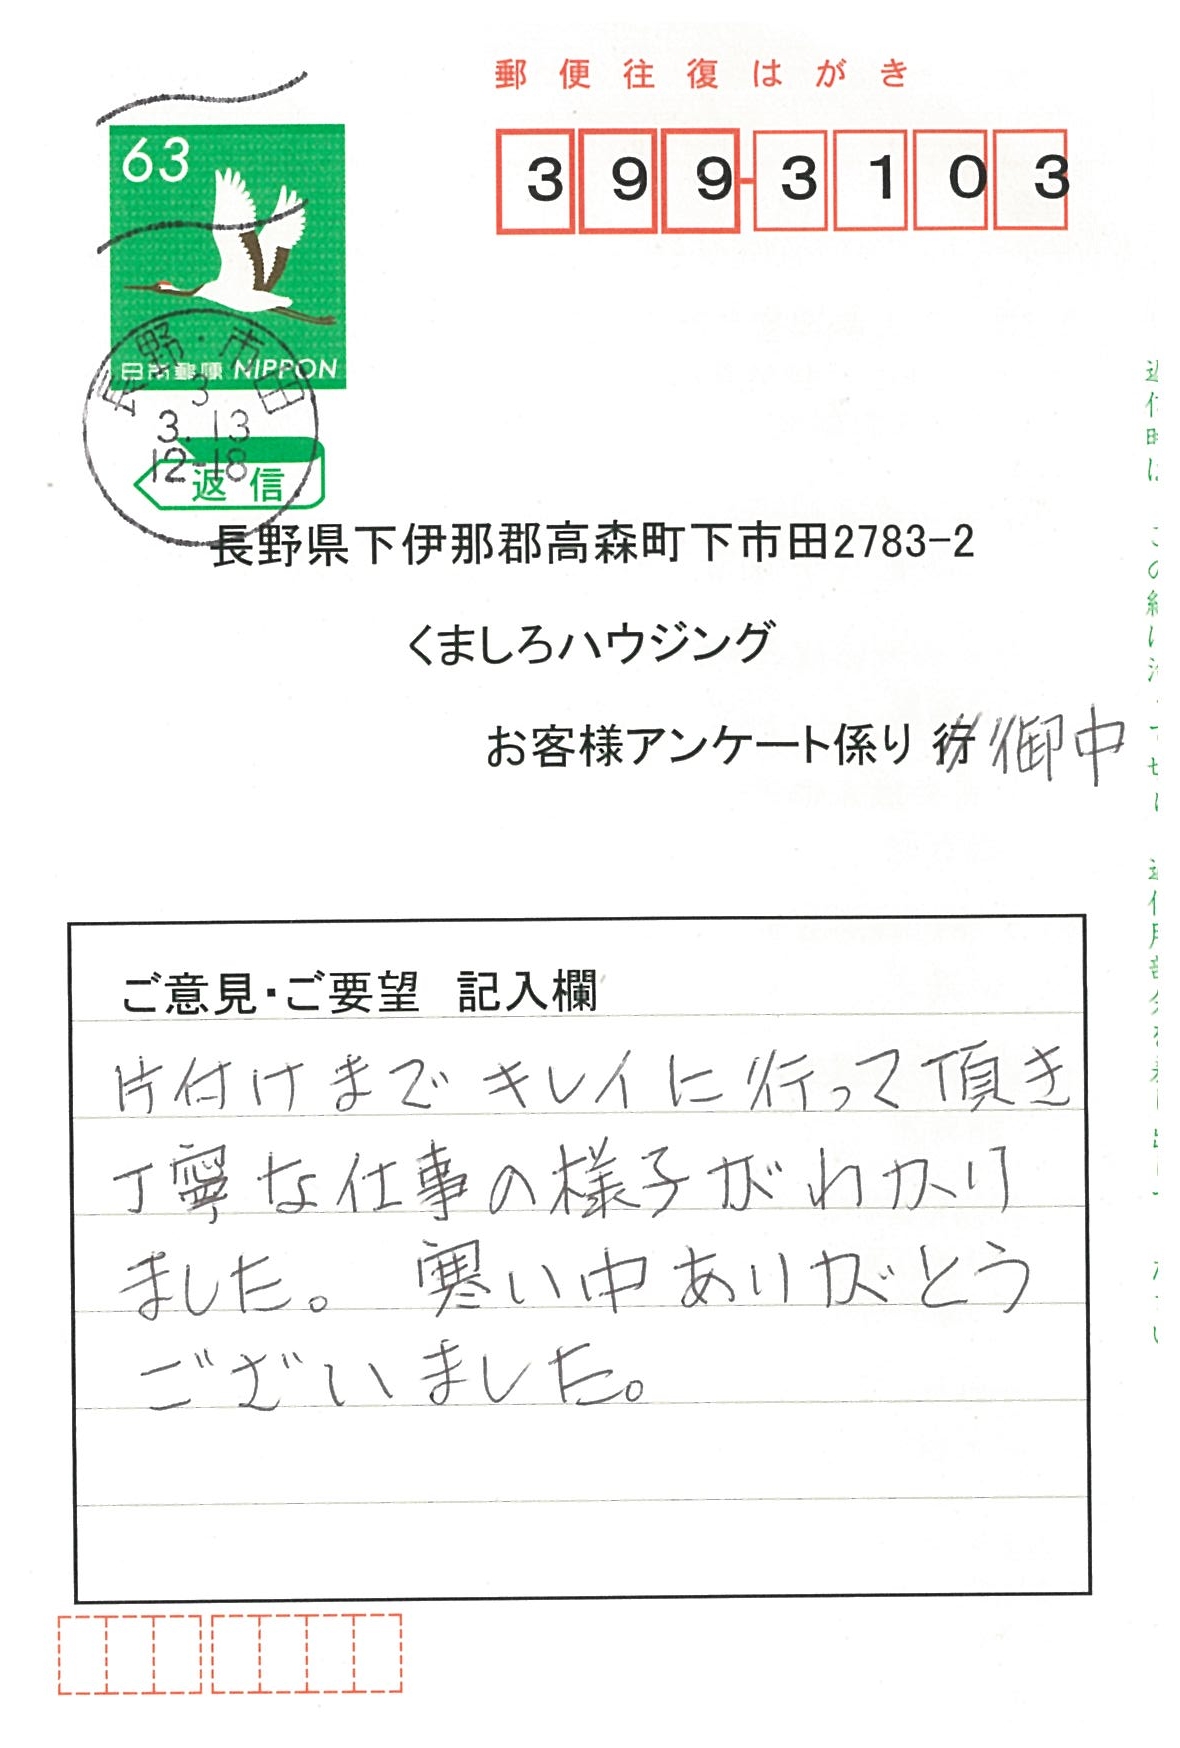 郵便往復はがき
63
399-3103
日本郵便 NIPPON
長野・市田
3
3.13
12-18
返信
長野県下伊那郡高森町下市田2783-2
くましろハウジング
お客様アンケート係り 行 御中
ご意見・ご要望 記入欄
片付けまでキレイに行って頂き
丁寧な仕事の様子がわかり
ました。寒い中ありがとう
ございました。